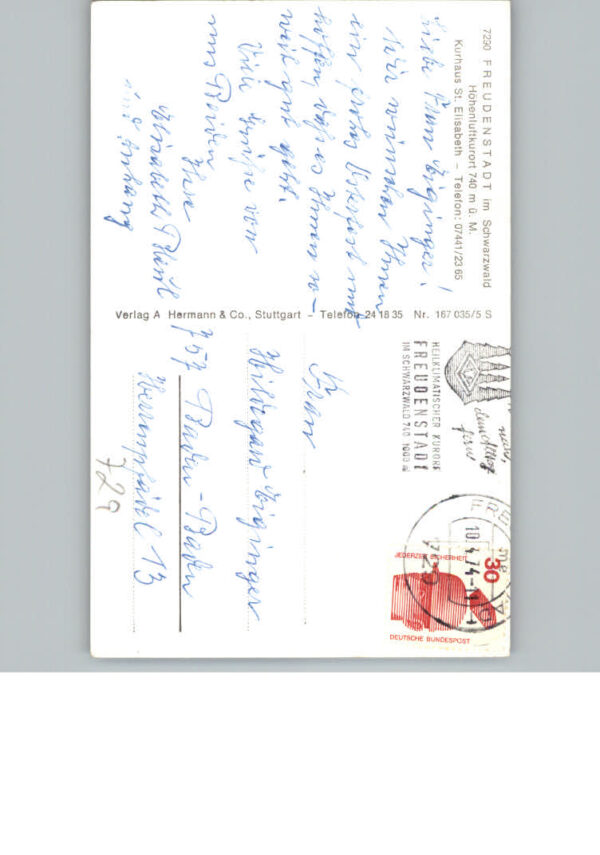 7290 FREUDENSTADT im Schwarzwald
Höhenluftkurort 740 m ü. M.
Kurhaus St. Elisabeth – Telefon: 07441/23 65
Liebe Frau
Wir wünschen Ihnen
ein frohes Osterfest und
hoffen, daß es Ihnen so-
weit gut geht.
Viele Grüße von
uns Beiden
Ihre
Elisabeth
und Anhang
Verlag A Hermann & Co., Stuttgart – Telefon 24 18 35 Nr. 167 035/5 S
HEILKLIMATISCHER KURORT
FREUDENSTADT
IM SCHWARZWALD 740-1000 m
dem Alltag
fern
10.4.74-11
729
JEDERZEIT SICHERHEIT
30
DEUTSCHE BUNDESPOST
Frau
Hildegard
757 Baden-Baden
13
729